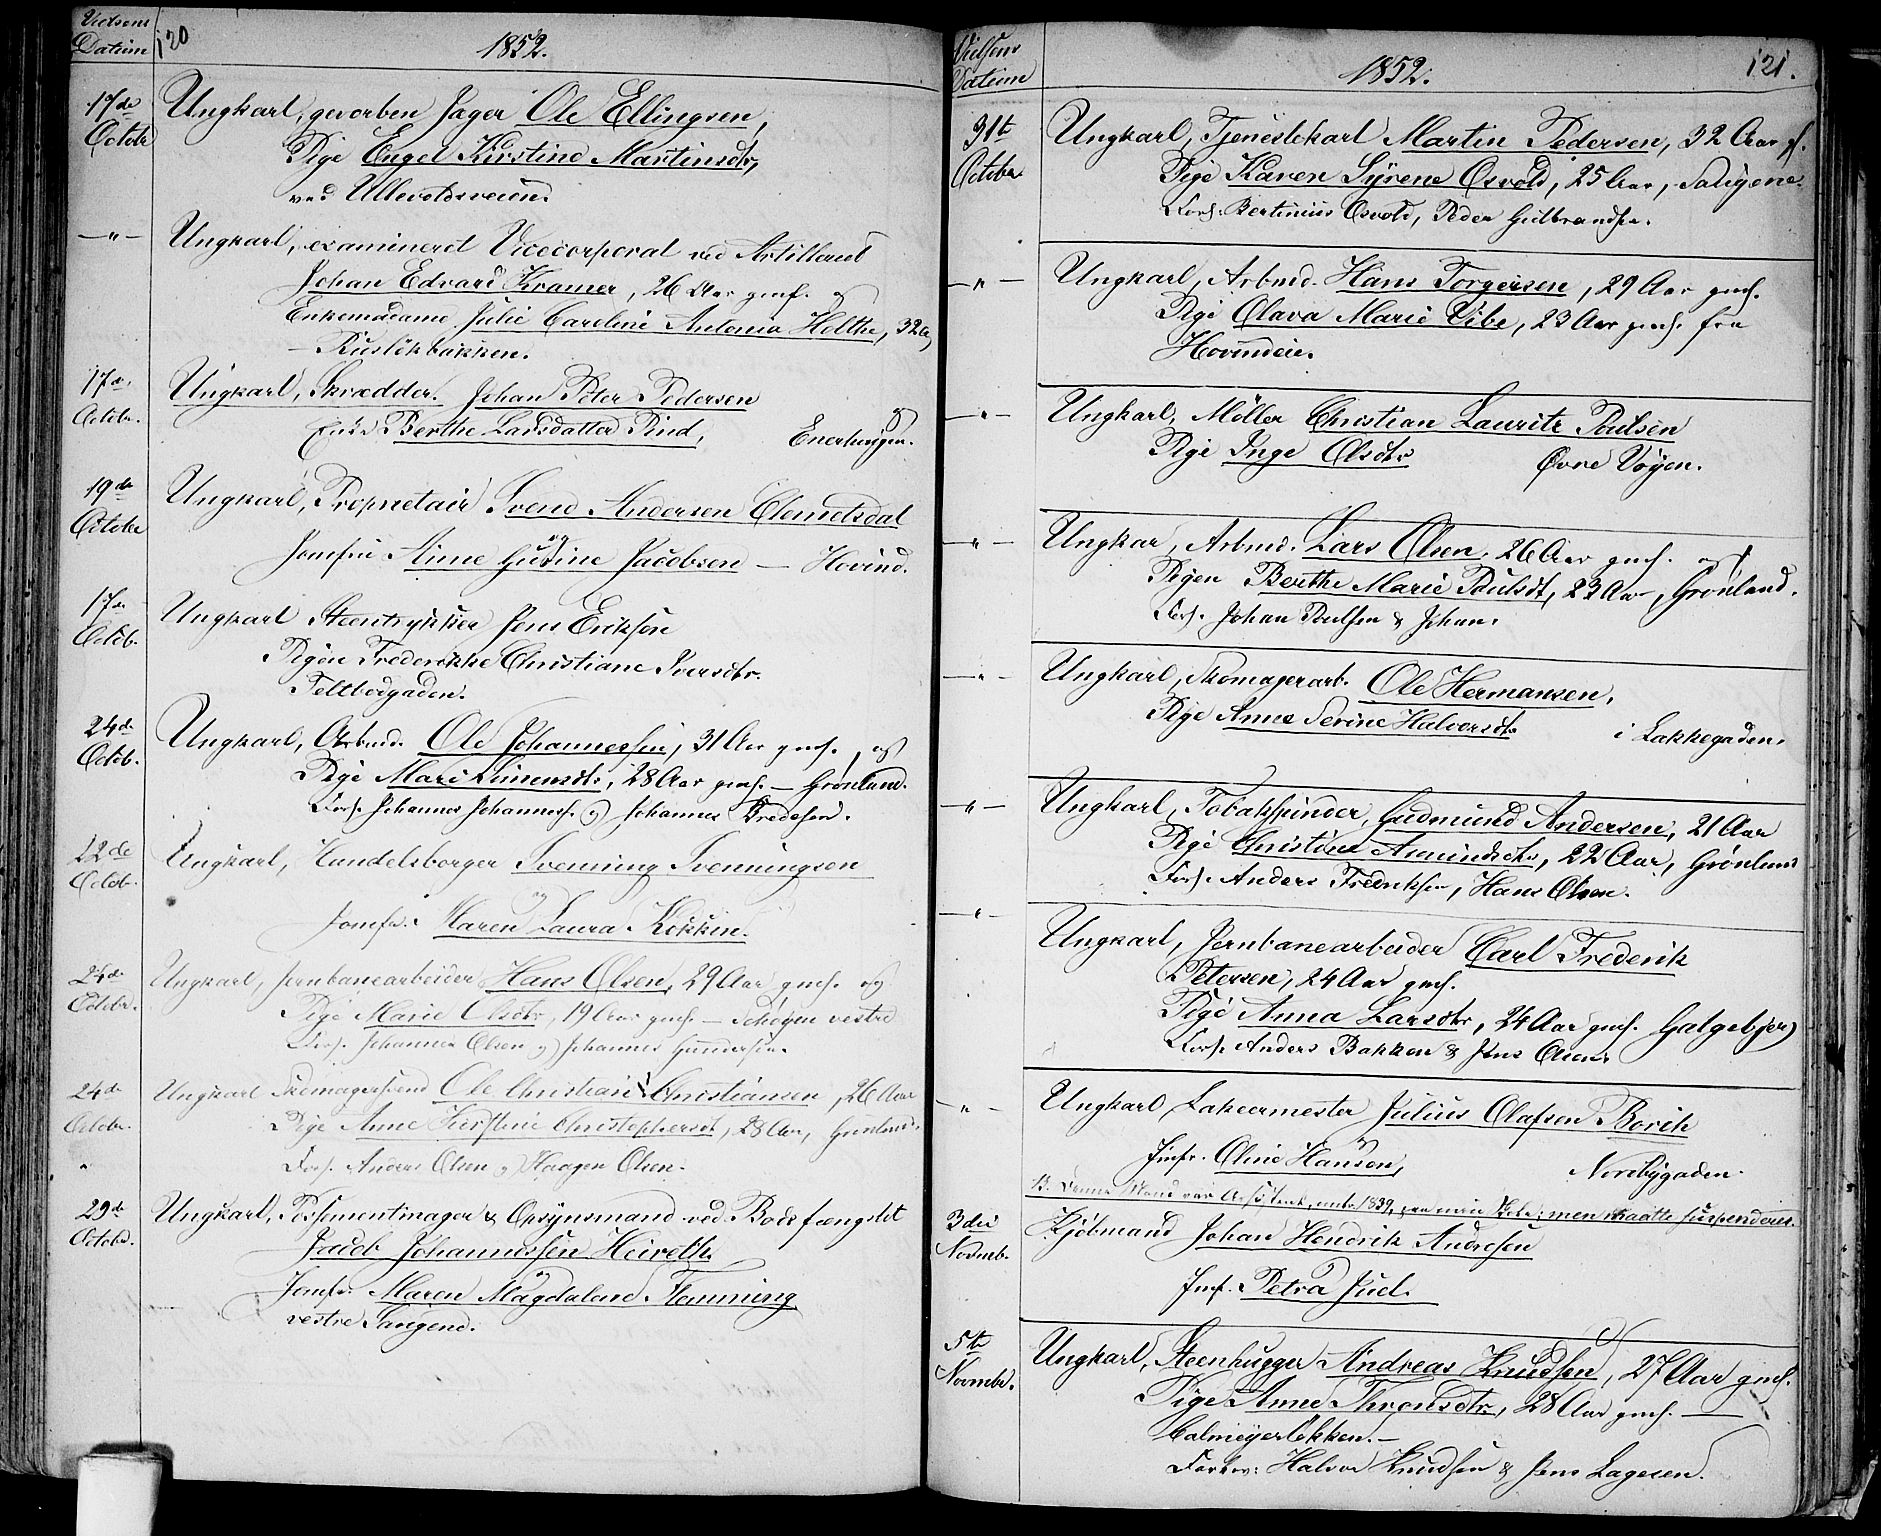 Vielsens
Datum
120
1852.
17de
Octobr
Ungkarl, gevorben Jæger Ole Ellingsen,
og
Pige Engel Kirstine Martinsdtr,
ved Ullevoldsveien.
—"—
Ungkarl, examineret Vicecorporal ved Artilleriet
Johan Edvard Kramer, 26 Aar gml. og
Enkemadame Julie Caroline Antonia Holthe, 32 a,
— Ruseløkbakken.
17de
Octobr.
Ungkarl, Skrædder. Johan Peter Pedersen
og
Enke Berthe Larsdatter Rind, Enerhaugen.
19de
Octobr
Ungkarl, Proprietair Svend Andersen Clemetsdal
og
Jomfru Anne Gurine Jacobsen — Hovind.
17de
Octob.
Ungkarl Steentrykker Jens Eriksen
Pigen Frederikke Christiane Iversdtr.
Teltbodgaden.
24de
Octob.
Ungkarl, Arbmd. Ole Johannessen, 31 Aar gml., og
Pige Mari Simensdtr, 28 Aar gml. — Grønland.
Forl. Johannes Johanness. og Johannes Bredesen.
22de
Octob.
Ungkarl, Handelsborger Svenning Svenningsen
og
Jomfr. Maren Laura Kokkin.
24de
Octobr.
Ungkarl, Jernbanearbeider Hans Olsen, 29 Aar, gml. og
Pige Marie Olsdtr, 19 Aar gml. — Schøyen vestre
Forl. Johannes Olsen og Johannes Gundersen.
24de
Octobr.
Ungkarl Skomagersvend Ole Christian Christiansen, 26 Aar
Pige Anne Kirstine Christophersdt, 28 Aar, Grønland.
Forl. Anders Olsen og Haagen Olsen.
29de
Octobr.
Ungkarl, Possementmager & Opsynsmand ved Bodsfængslet
Jacob Johannessen Heireth
og
Jomfr. Maren Magdalene Flemming
vestre Langend.
Vielsens
Datum
1852.
121.
31te
Octobr
Ungkarl, Tjenestekarl Martin Pedersen, 32 Aar gl.
Pige Karen Sÿrene Osvold, 25 Aar, Saugene.
Forl. Bertinius Osvold, Peder Gulbrandsen.
—"—
Ungkarl, Arbmd. Hans Torgersen, 29 Aar gml.
Pige Olava Marie Vibe, 23 Aar gml. fra
Hovindeie.
—"—
Ungkarl, Møller Christian Lauritz Poulsen
Pige Inge Olsdtr Øvre Vøyen.
—"—
Ungkar, Arbmd. Lars Olsen, 26 Aar gml. og
Pigen Berthe Marie Poulsdt, 23 Aar, Grönland.
Forl. Johan Poulsen & Johan.
—"—
Ungkarl, Skomagerarb. Ole Hermansen,
Pige Anne Severine Halvorsdtr i Lakkegaden.
—"—
Ungkarl, Tobakspinder, Gudmund Andersen, 21 Aar
Pige Christine Amundsdtr, 22 Aar, Grönland
Forl. Anders Fredriksen, Hans Olsen.
—"—
Ungkarl, Jernbanearbeider Carl Frederik
Petersen, 24 Aar gml.
Pige Anna Larsdtr, 24 Aar gml. Galgebjerg
Forl. Anders Bakken & Jens Olsen.
—"—
Ungkarl Lakeermester Julius Olafsen Borch
og
Jmfr. Oline Hansen, Nordbygaden.
B. Denne Mand var 1839, men maatte suspenderes.
3die
Novmb.
Kjøbmand Johan Hendrik Andresen
og
Jmf. Petra Juel.
5te
Novmbr.
Ungkarl, Steenhugger Andreas Knudsen, 27 Aar gml. og
Pige Anne Thronsdtr, 28 Aar gml. —
Calmeyerløkken.—
Forlov: Halvor Knudsen & Jens Lagesen.